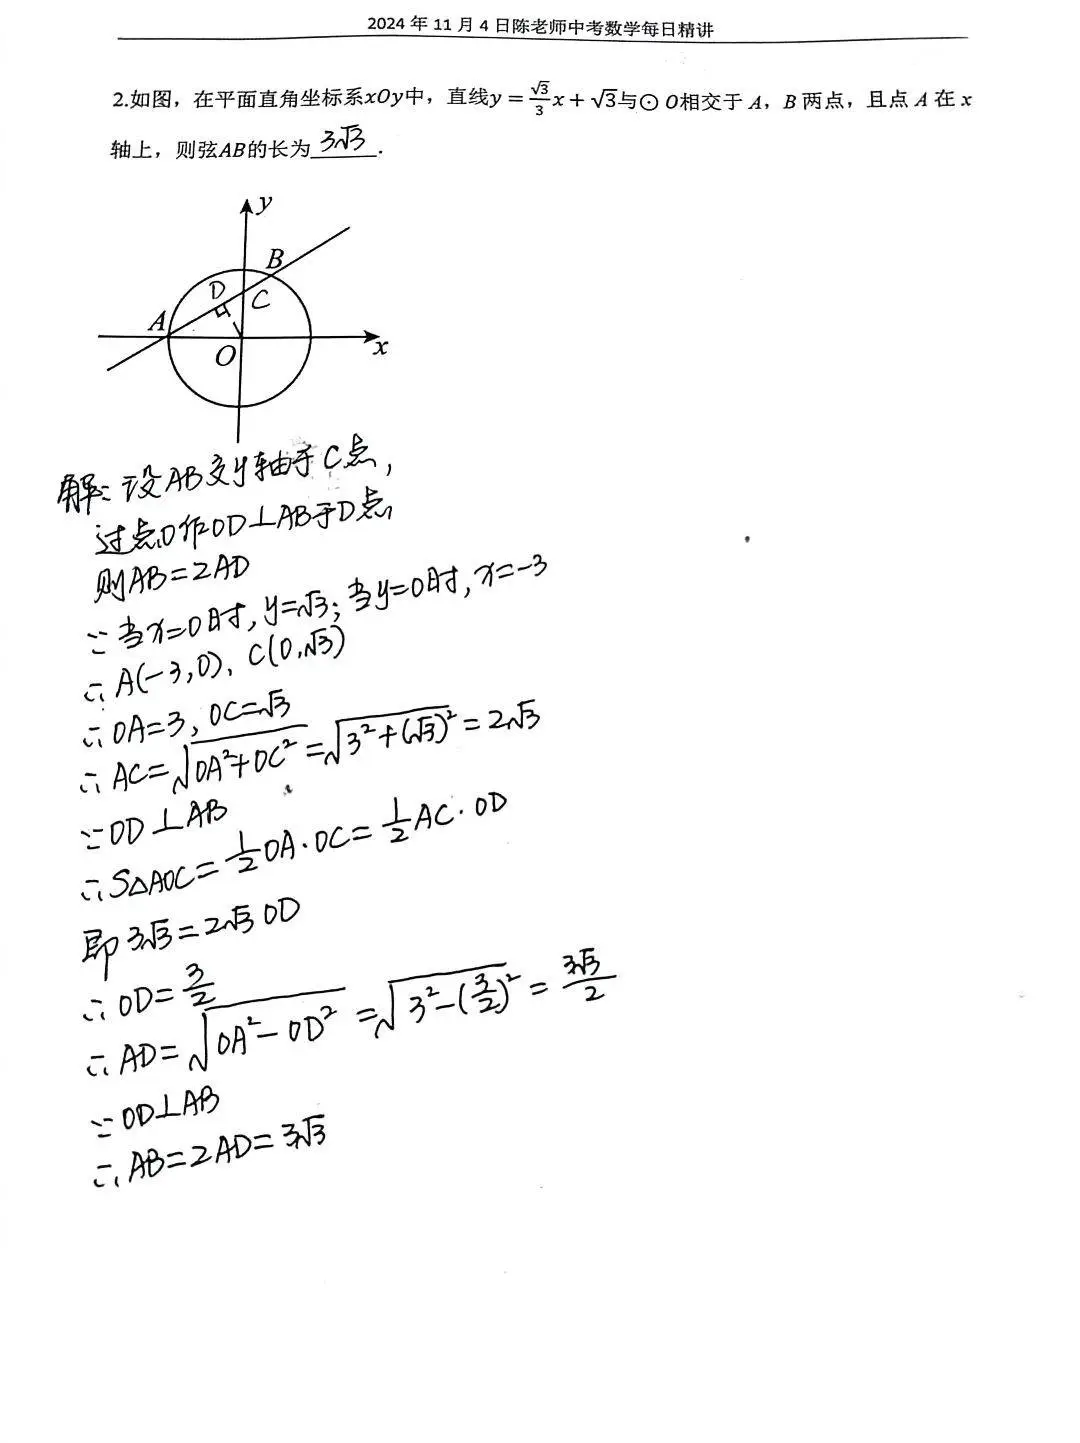 2024 年 11 月 4 日陈老师中考数学每日精讲
2.如图，在平面直角坐标系xOy中，直线y = √3/3 x + √3与⊙ O相交于 A，B 两点，且点 A 在 x
轴上，则弦AB的长为 3√3 .
y
B
D
C
A
O
x
解：设AB交y轴于C点，
过点O作OD⊥AB于D点，
则AB=2AD
∵当x=0时，y=√3；当y=0时，x=-3
∴A(-3,0)、C(0,√3)
∴OA=3，OC=√3
∴AC=√(OA²+OC²)=√(3²+(√3)²)=2√3
∵OD⊥AB
∴S△AOC=1/2 OA·OC=1/2 AC·OD
即 3√3=2√3 OD
∴OD=3/2
∴AD=√(OA²-OD²)=√(3²-(3/2)²)=3√3/2
∵OD⊥AB
∴AB=2AD=3√3